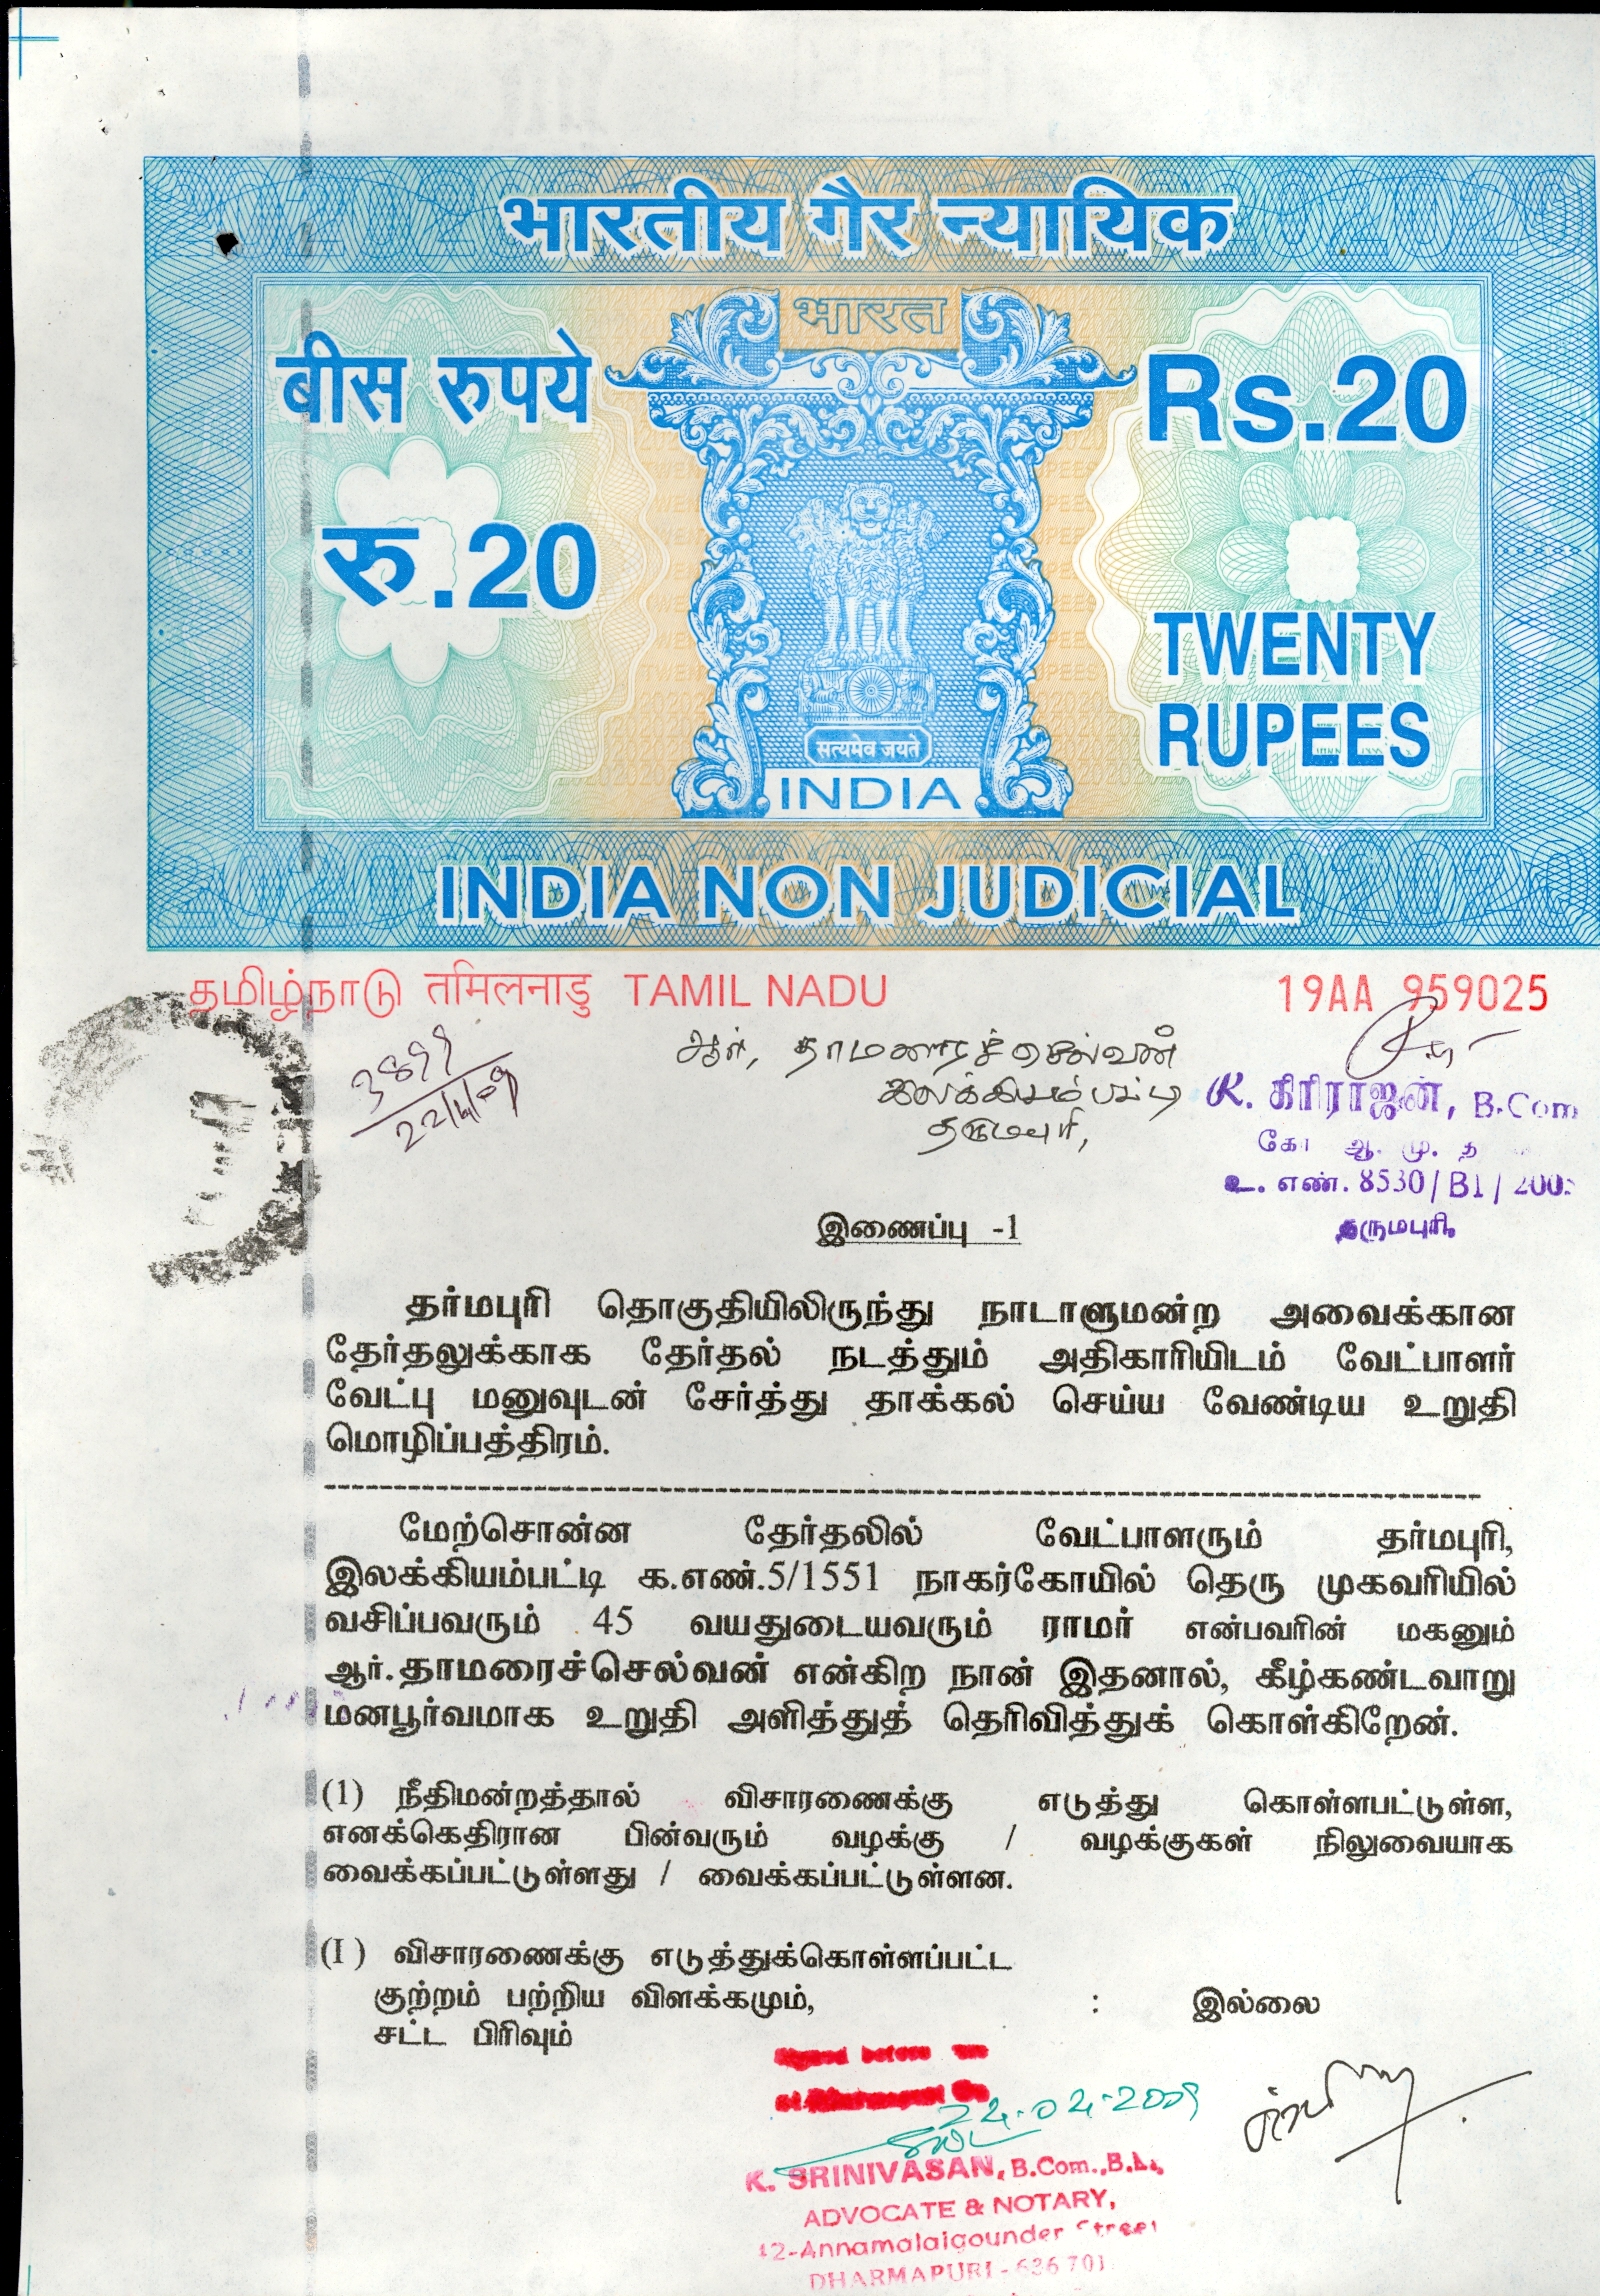 भारतीय गैर न्यायिक
भारत
बीस रुपये
Rs.20
रु.20
TWENTY
RUPEES
सत्यमेव जयते
INDIA
INDIA NON JUDICIAL
தமிழ்நாடு तमिलनाडु TAMIL NADU
19AA 959025
22/4/09
ஆர். தாமரைச்செல்வன்
இலக்கியம்பட்டி
தருமபுரி,
K. கிரிராஜன், B.Com
உ. எண். 8530/B1/200
தருமபுரி.
இணைப்பு -1
தர்மபுரி தொகுதியிலிருந்து நாடாளுமன்ற அவைக்கான
தேர்தலுக்காக தேர்தல் நடத்தும் அதிகாரியிடம் வேட்பாளர்
வேட்பு மனுவுடன் சேர்த்து தாக்கல் செய்ய வேண்டிய உறுதி
மொழிப்பத்திரம்.
மேற்சொன்ன தேர்தலில் வேட்பாளரும் தர்மபுரி,
இலக்கியம்பட்டி க.எண்.5/1551 நாகர்கோயில் தெரு முகவரியில்
வசிப்பவரும் 45 வயதுடையவரும் ராமர் என்பவரின் மகனும்
ஆர்.தாமரைச்செல்வன் என்கிற நான் இதனால், கீழ்கண்டவாறு
மனபூர்வமாக உறுதி அளித்துத் தெரிவித்துக் கொள்கிறேன்.
(1) நீதிமன்றத்தால் விசாரணைக்கு எடுத்து கொள்ளபட்டுள்ள,
எனக்கெதிரான பின்வரும் வழக்கு / வழக்குகள் நிலுவையாக
வைக்கப்பட்டுள்ளது / வைக்கப்பட்டுள்ளன.
(I ) விசாரணைக்கு எடுத்துக்கொள்ளப்பட்ட
குற்றம் பற்றிய விளக்கமும், : இல்லை
சட்ட பிரிவும்
Signed before me
24-04-2009
K. SRINIVASAN, B.Com.,B.L.,
ADVOCATE & NOTARY,
42-Annamalaigounder Street
DHARMAPURI - 636 701